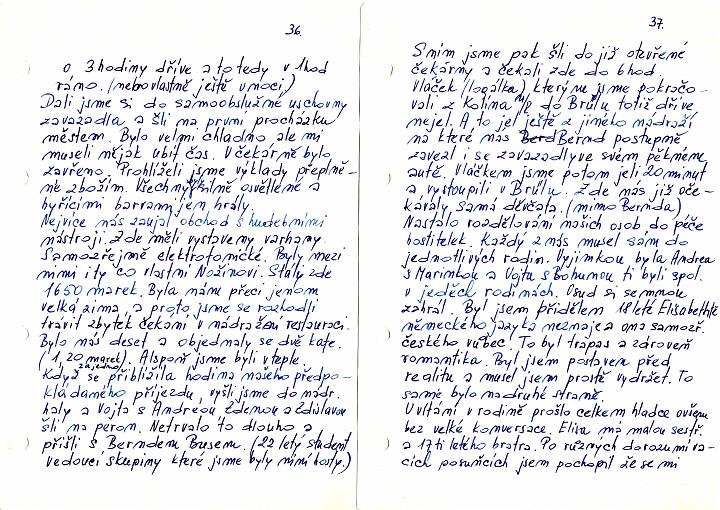 36.
o 3 hodiny dříve a to tedy v 1 hod
ráno. (nebo vlastně ještě v noci)
Dali jsme si do samoobslužné uschovny
zavazadla a šli na první procházku
městem. Bylo velmi chladno ale mi
museli nějak ubít čas. V čekárně bylo
zavřeno. Prohlíželi jsme výklady přeplně-
né zbožím. Všechny silně osvětlené a
hyřícími barvami jen hrály.
Nejvíce nás zaujal obchod s hudebními
nástroji. Zde měli vystaveny varhany.
Samozřejmě elektrofonické. Byly mezi
nimi i ty co vlastní Nožinovi. Stály zde
1650 marek. Byla nám přeci jenom
velká zima, a proto jsme se rozhodli
trávit zbytek čekání v nádražní restauraci.
Bylo nás deset a objednaly se dvě kafe.
(1,20 marek za jedno). Alespoň jsme byli v teple.
Když se přiblížila hodina našeho předpo-
kládaného příjezdu, vyšli jsme do nádr.
haly a Vojta s Andreou Zdenou a Zdislavou
šli na peron. Netrvalo to dlouho a
přišli s Berndem Busemem. (22 letý student
vedoucí skupiny které jsme byly mími hosty.)
37.
S ním jsme pak šli do již otevřené
čekárny a čekali zde do 6 hod.
Vláček (logálka) kterým jsme pokračo-
vali z Kolína n/R do Brühlu totiž dříve
nejel. A to jel ještě z jiného nádraží
na které nás Bernd postupně
zavezl i se zavazadly ve svém pěkném
autě. Vláčkem jsme potom jeli 20 minut
a vystoupili v Brühlu. Zde nás již oče-
kávaly samá děvčata. (mimo Bernda)
Nastalo rozdělování našich osob do péče
hostitelek. Každý z nás musel sám do
jednotlivých rodin. Vyjímkou byla Andrea
s Marimkou a Vojta s Bohumou ti byli spol.
v jedněch rodinách. Osud si se mnou
zahrál. Byl jsem přidělem 18 leté Elisabethtě
německého jazyka neznaje a ona samozř.
českého vůbec. To byl trapas a zdroveň
romantika. Byl jsem postaven před
realitu a musel jsem prostě vydržet. To
samé bylo na druhé straně.
Uvítání v rodině prošlo celkem hladce ovšem
bez velké konverzace. Elisa má malou sestř.
a 17ti letého bratra. Po různých dorozumíva-
cích posuňcích jsem pochopil že se mi